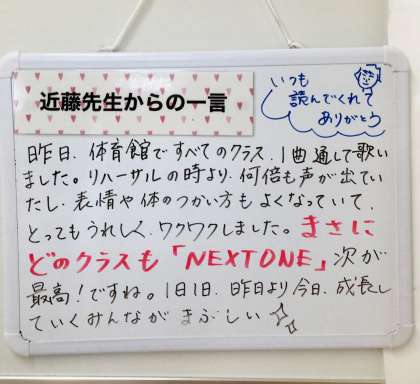 近藤先生からの一言
いつも
読んでくれて
ありがとう
昨日、体育館ですべてのクラス、1曲通して歌い
ました。リハーサルの時より、何倍も声が出てい
たし、表情や体のつかい方もよくなっていて、
とってもうれしく、ワクワクしました。まさに
どのクラスも「NEXTONE」次が
最高！ですね。1日1日、昨日より今日、成長し
ていくみんながまぶしい